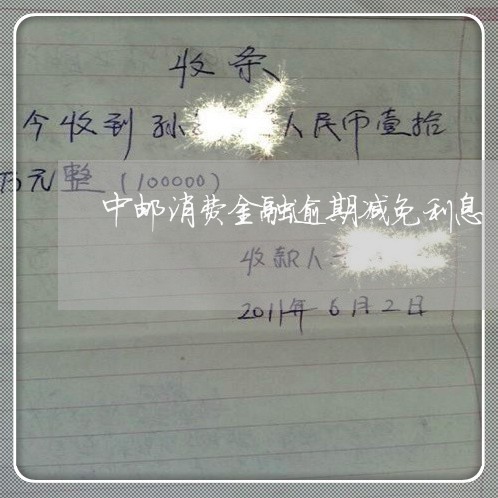 收条
今收到孙 人民币壹拾
万元整(100000)
中邮消费金融逾期减免利息
收款人
2011年6月2日